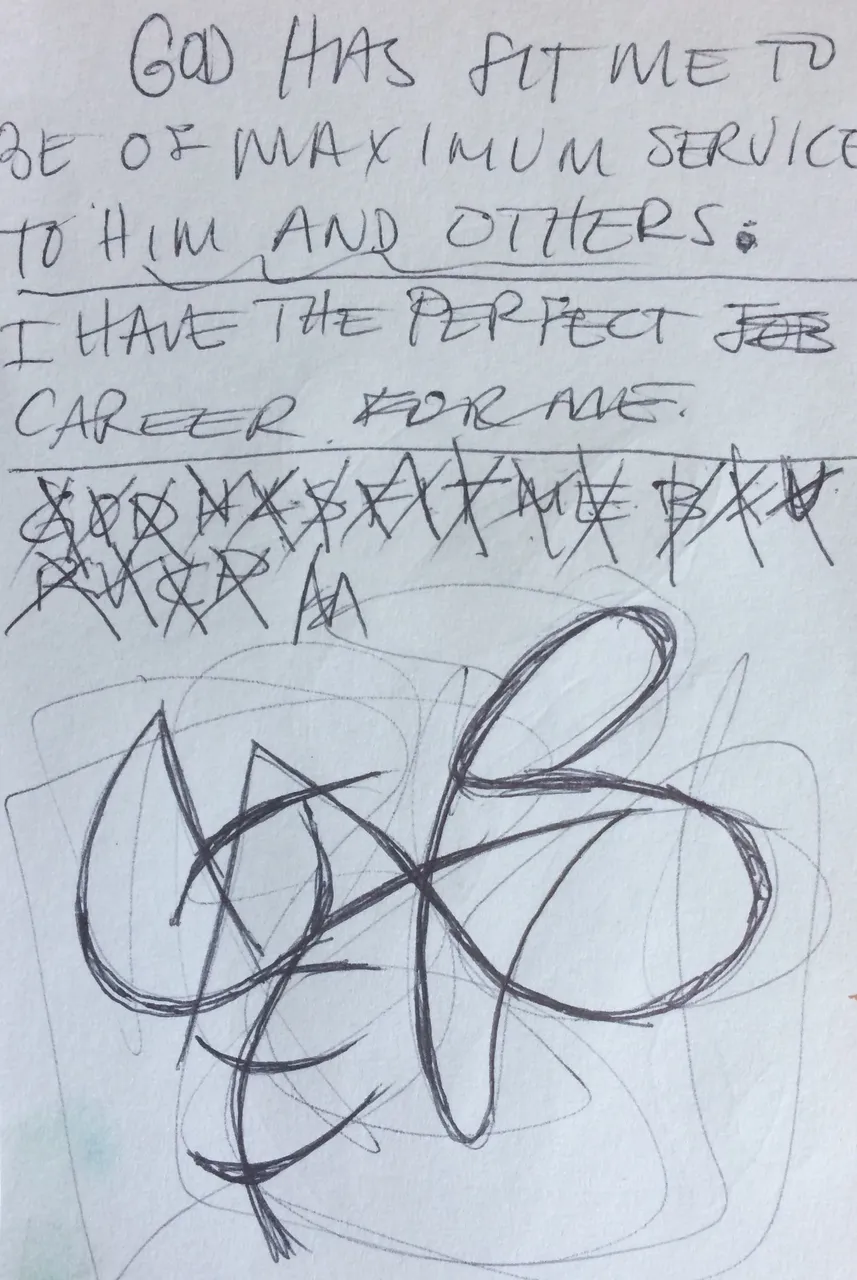 GOD HAS FIT ME TO
BE OF MAXIMUM SERVICE
TO HIM AND OTHERS.
I HAVE THE PERFECT JOB
CAREER FOR ME.
GOD HAS FIT ME